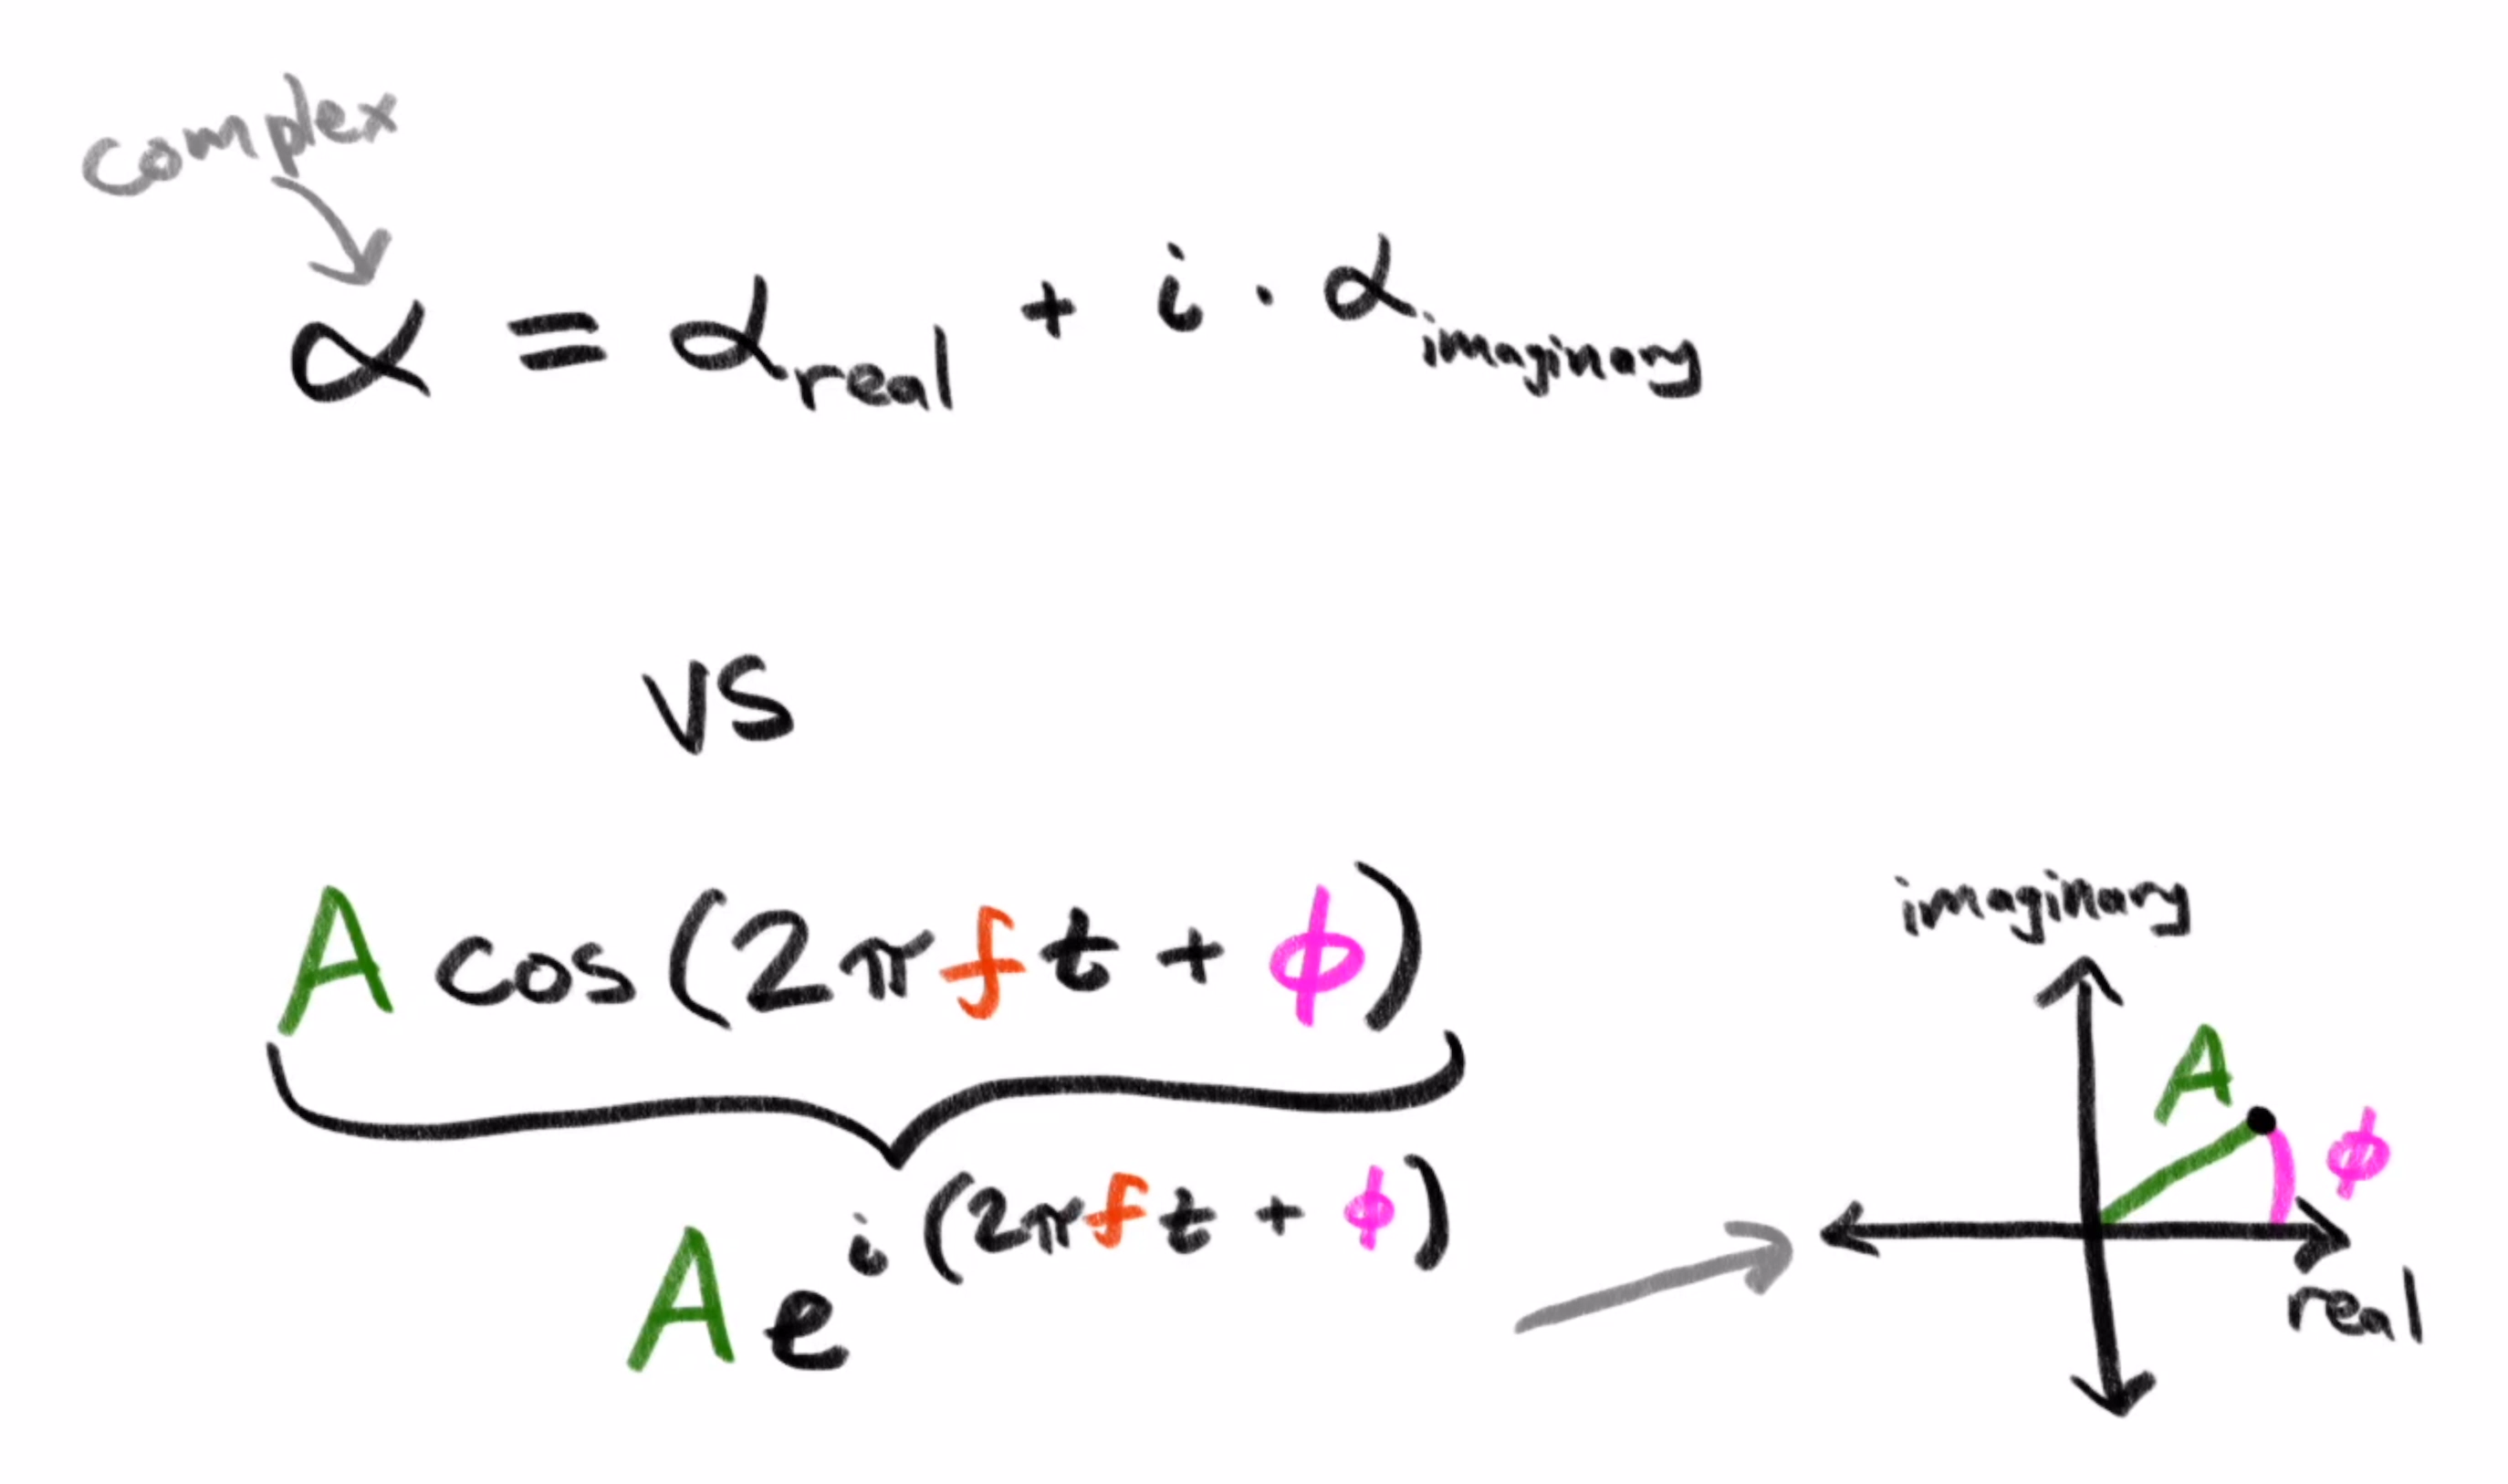 complex
α = α_real + i · α_imaginary
vs
A cos(2πft + ϕ)
A e^i(2πft + ϕ)
imaginary
A
ϕ
real